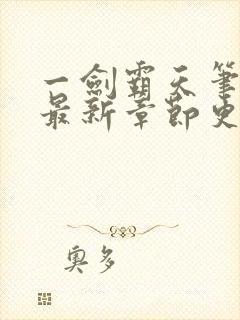 一劍霸天筆
最新章節史
奧多